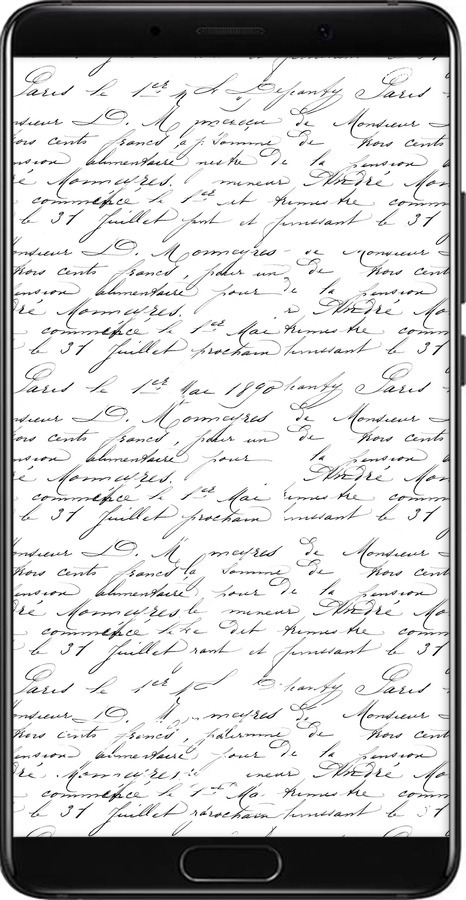 Paris le 1er Paris
Monsieur D. M de Monsieur
trois cents francs, somme de trois cents
pension alimentaire de la pension
ré Monmeyres. mineur André Mon
commencé le 1er et trimestre comm
le 31 Juillet et finissant le 31
Monsieur D. Monmeyres de Monsieur
trois cents francs, pour un de trois cents
pension alimentaire pour de la pension
ré Monmeyres. André Mon
commence le 1er Mai trimestre comm
le 31 Juillet prochain finissant le 31
Paris le 1er Mai 1890 Paris
Monsieur D. Monmeyres de Monsieur
trois cents francs, pour un de trois cents
pension alimentaire pour la pension
ré Monmeyres. André Mon
commence le 1er Mai comm
le 31 Juillet prochain finissant le 31
Monsieur D. M meyres de Monsieur
trois cents francs la somme de trois cents
pension alimentaire pour de la pension
ré Monmeyres le mineur André Mon
commence le dit trimestre comm
le 31 Juillet et finissant le 31
Paris le 1er Paris
Monsieur D. meyres de Monsieur
trois cents francs, de trois cents
pension alimentaire pour de la pension
ré Monmeyres André Mon
commencé le 1er Ma trimestre comm
le 31 Juillet finissant le 31